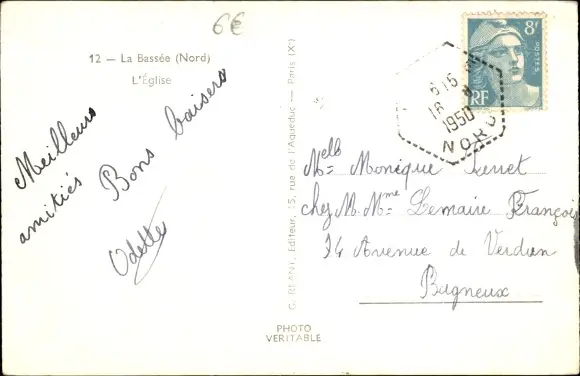 6€
12 — La Bassée (Nord)
L'Église
Meilleurs
amitiés Bons baisers
Odette
G. RÉANT, Editeur, 15, rue de l'Aqueduc — Paris (X)
PHOTO
VERITABLE
8F
POSTES
RF
615
16 8
1950
NORD
Melle Monique
chez M. Mme Lemaire François
74 Avenue de Verdun
Bagneux